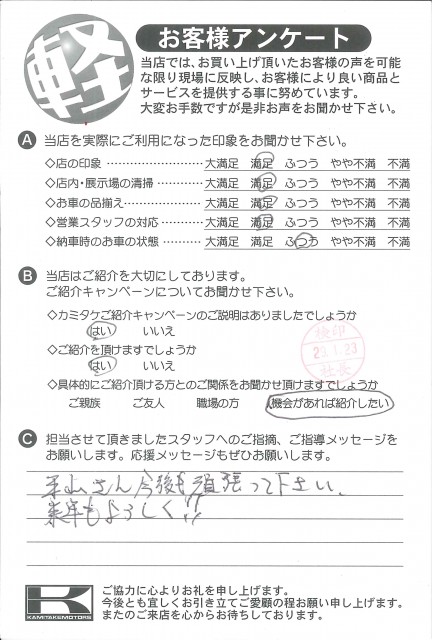 軽
お客様アンケート
当店では、お買い上げ頂いたお客様の声を可能
な限り現場に反映し、お客様により良い商品と
サービスを提供する事に努めています。
大変お手数ですが是非お声をお聞かせ下さい。
A 当店を実際にご利用になった印象をお聞かせ下さい。
◇店の印象 ………………… 大満足 満足 ふつう やや不満 不満
◇店内・展示場の清掃 ………… 大満足 満足 ふつう やや不満 不満
◇お車の品揃え ……………… 大満足 満足 ふつう やや不満 不満
◇営業スタッフの対応 ………… 大満足 満足 ふつう やや不満 不満
◇納車時のお車の状態 ………… 大満足 満足 ふつう やや不満 不満
B 当店はご紹介を大切にしております。
ご紹介キャンペーンについてお聞かせ下さい。
◇カミタケご紹介キャンペーンのご説明はありましたでしょうか
はい いいえ
◇ご紹介を頂けますでしょうか
はい いいえ
検印
23.1.23
社長
◇具体的にご紹介頂ける方とのご関係をお聞かせ頂けますでしょうか
ご親族 ご友人 職場の方 機会があれば紹介したい
C 担当させて頂きましたスタッフへのご指摘、ご指導メッセージを
お願いします。応援メッセージもぜひお願いします。
さん今後も頑張って下さい、
来年もよろしく!!
K
KAMITAKEMOTORS
ご協力に心よりお礼を申し上げます。
今後とも宜しくお引き立てご愛顧の程お願い申し上げます。
またのご来店を心からお待ちしております。